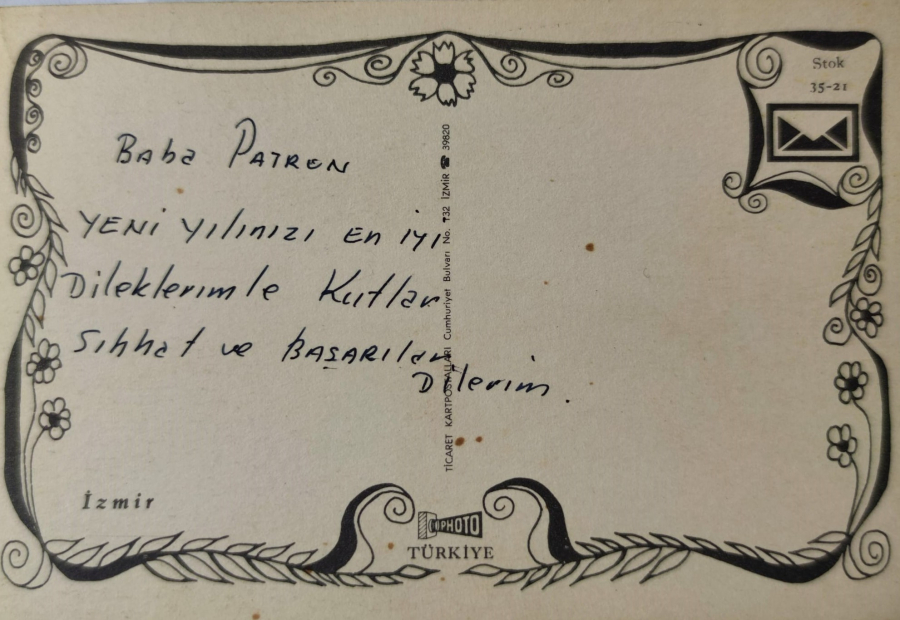 Stok
35-21
Baba PATRON
YENİ Yılınızı En iyi
Dileklerimle Kutlar
Sıhhat ve BAŞARIlar
Dilerim.
TİCARET KARTPOSTALLARI Cumhuriyet Bulvarı No. 132 İZMİR ☎ 39820
İzmir
PHOTO
TÜRKİYE